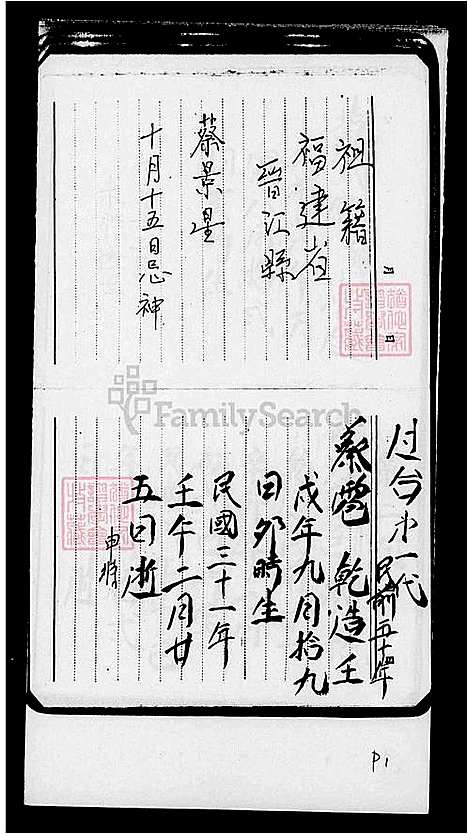 祖籍
福建省
晋江縣
蔡景星
十月十五日忌神
月 日
FamilySearch
过台才一代
民前五十年
蔡 乾造壬
戌年九月拾九
日卯時生
民國三十一年
壬午二月廿
五日逝
申時
P1